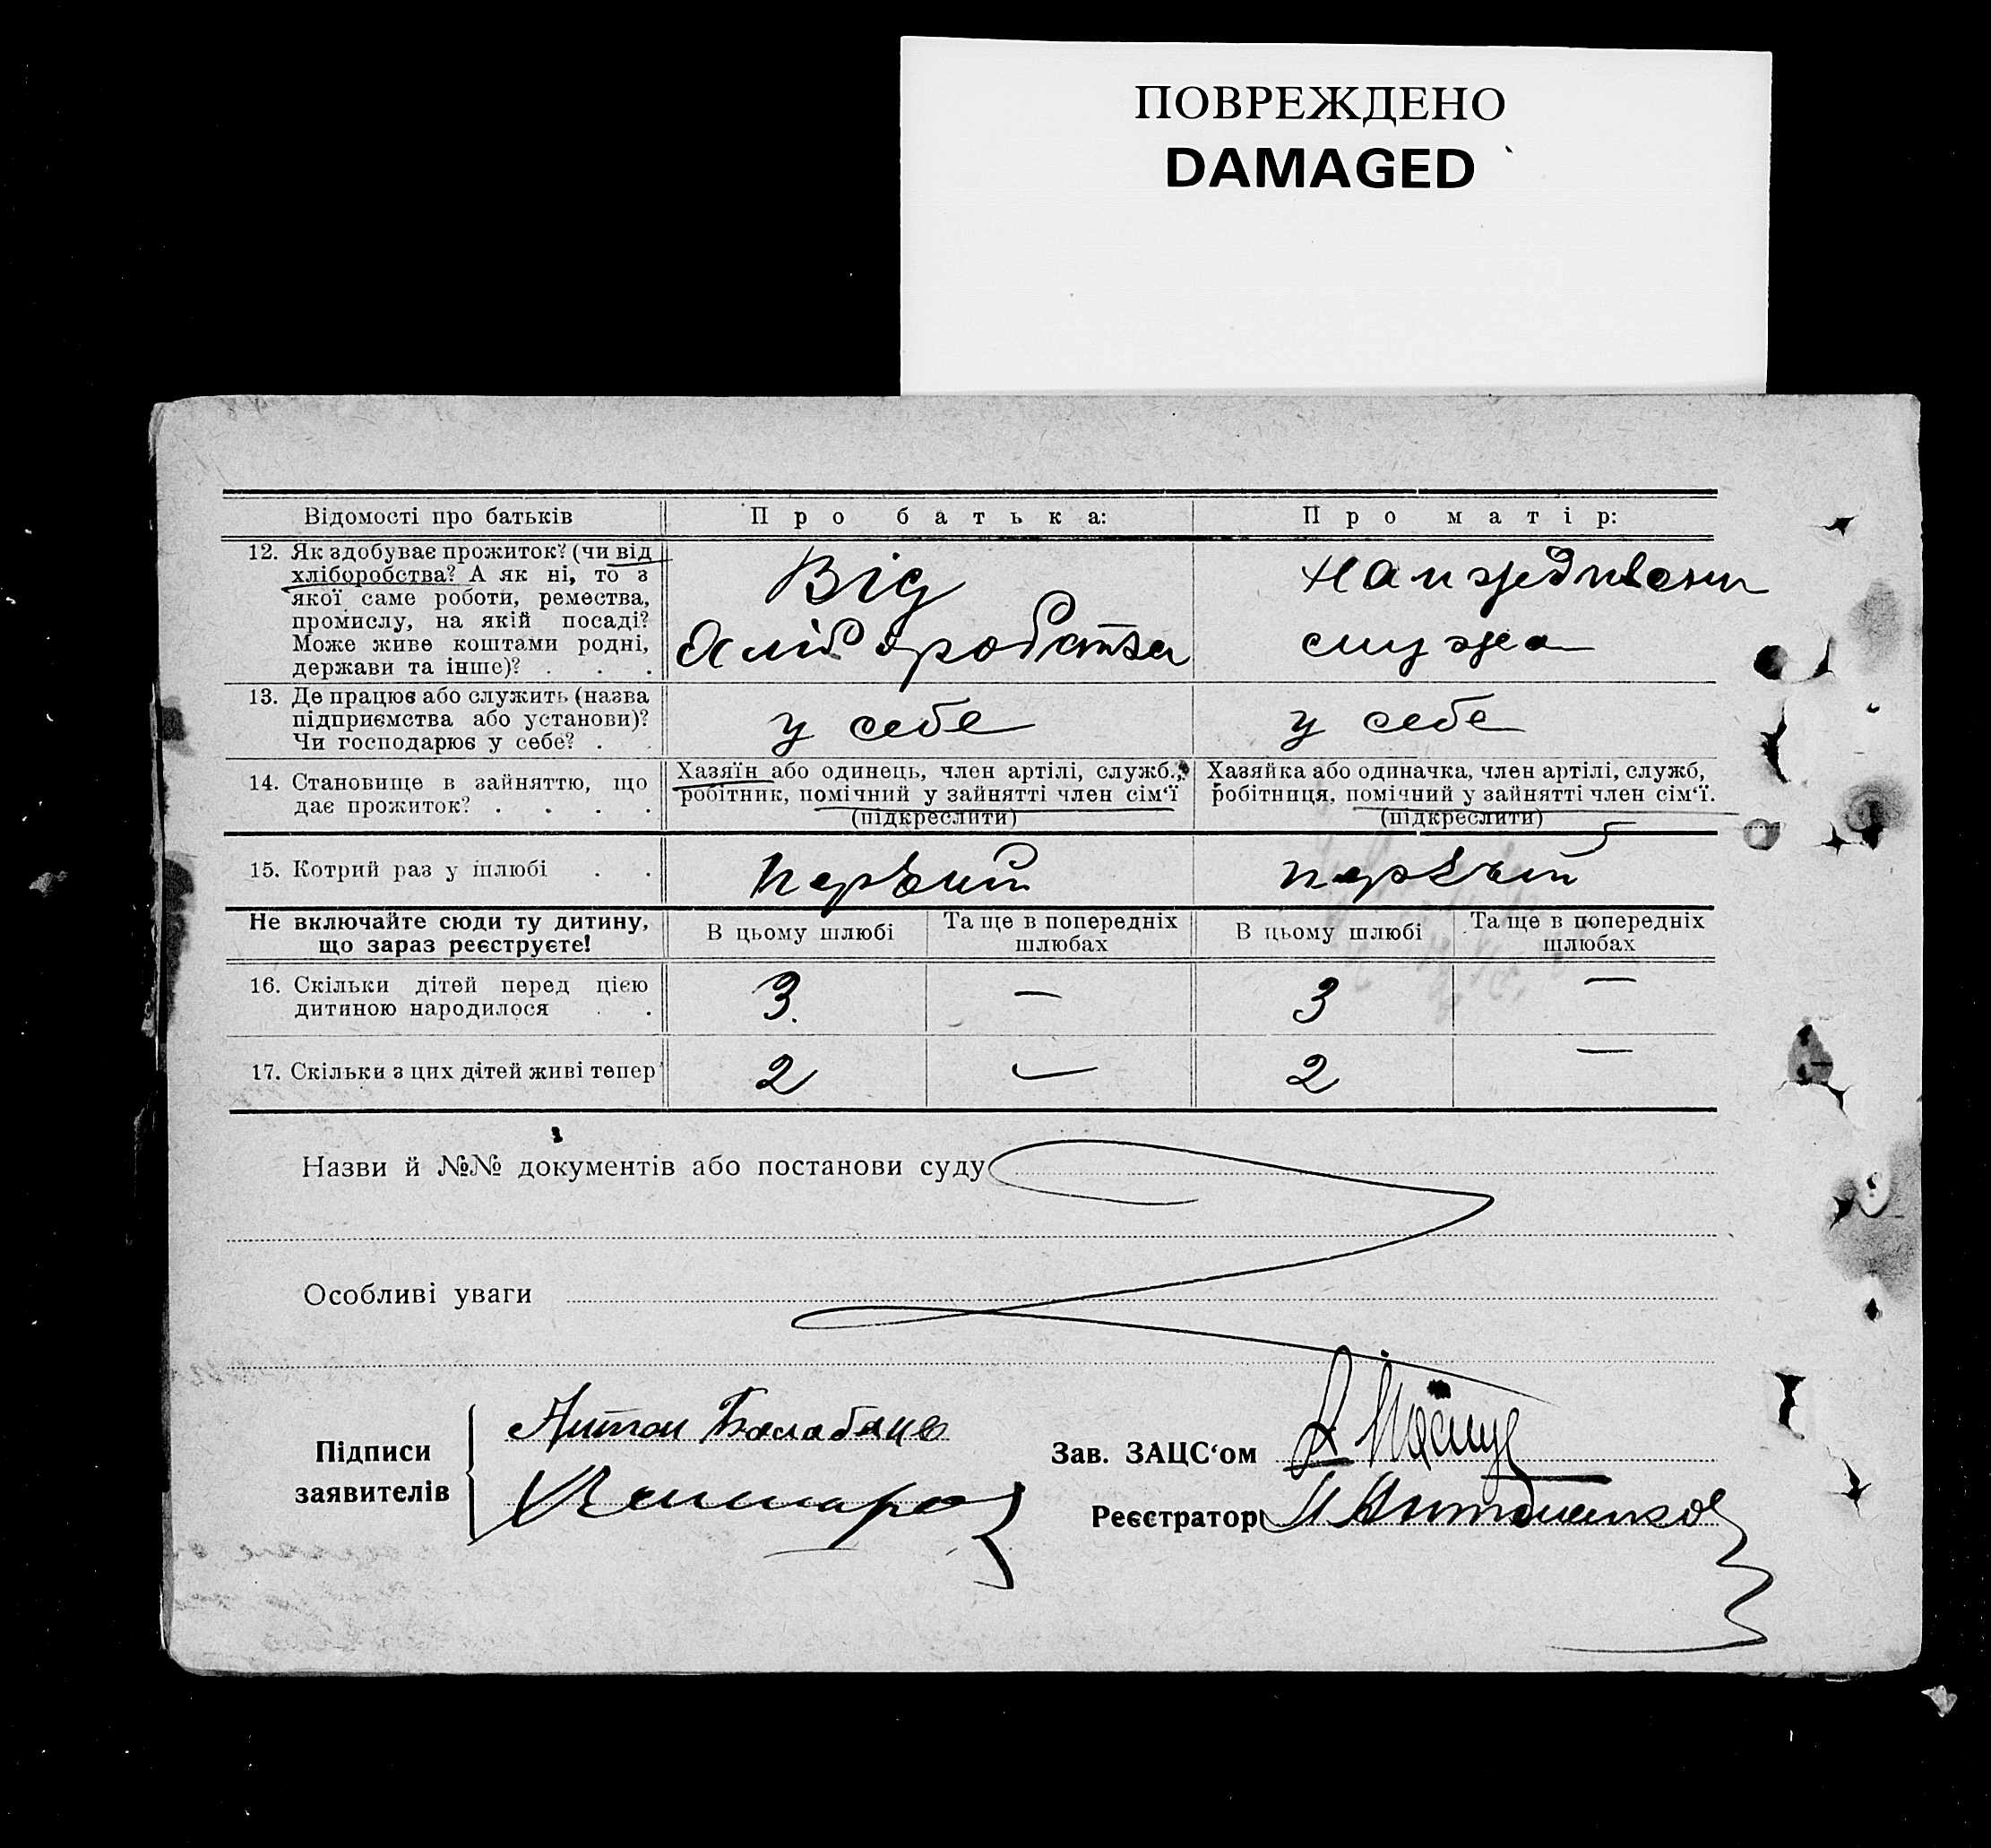 ПОВРЕЖДЕНО
DAMAGED
Відомості про батьків
Про батька:
Про матір:
12. Як здобуває прожиток? (чи від
хліборобства? А як ні, то з
якої саме роботи, ремества,
промислу, на якій посаді?
Може живе коштами родні,
держави та інше)? . . .
Від
хліборобства
на иждивени
мужа
13. Де працює або служить (назва
підприємства або установи)?
Чи господарює у себе? . .
у себе
у себе
14. Становище в зайняттю, що
дає прожиток? . . . .
Хазяїн або одинець, член артілі, служб.,
робітник, помічний у зайнятті член сім‘ї
(підкреслити)
Хазяйка або одиначка, член артілі, служб,
робітниця, помічний у зайнятті член сім‘ї.
(підкреслити)
15. Котрий раз у шлюбі . .
первий
первый
Не включайте сюди ту дитину,
що зараз реєструєте!
В цьому шлюбі
Та ще в попередніх
шлюбах
В цьому шлюбі
Та ще в попередніх
шлюбах
16. Скільки дітей перед цією
дитиною народилося . .
3.
—
3
—
17. Скільки з цих дітей живі тепер
2
—
2
—
Назви й №№ документів або постанови суду
Особливі уваги
Підписи
заявителів
Антон
Зав. ЗАЦС‘ом
Реєстратор